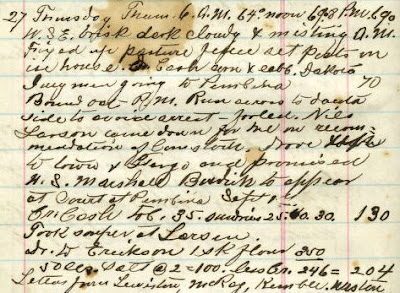 27 Thursday Therm 6. A.M. 64° noon 69 8 P.M. 690
W.S.E. brisk dark cloudy & misting A.M.
Fixed up pasture fence set Posts on
ice house. Cash corn & eggs, Dakota
Jurymen going to Pembina 70
Bound out P.M. Run across to dacota
side to avoid arrest - Nils
Larson came down for me on recom-
mendation of Comstock. drove
to town & Fargo and promised
U.S. Marshall Burdick to appear
at Court at Pembina Sept
Cr. Cash tob. 35. sundries 25. 30. 130
Took supper at Larsen.
Dr. D Erickson 1 sk flour 350
50 lbs. Salt @ 2 = 100. less Cr. 246 = 204
Letters from Lewiston, McKay, Kimble. Weston